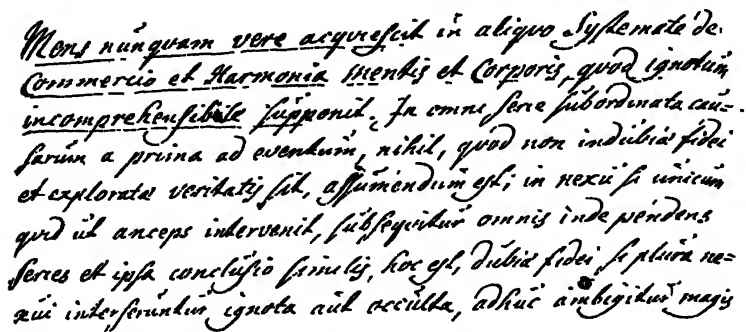 Mens nunquam vere acquiescit in aliquo Systemate de
Commercio et Harmonia Mentis et Corporis, quod ignotum
incomprehensibile supponit. In omni serie subordinata cau=
sarum a prima ad eventum, nihil, quod non indubiæ fidei
et exploratæ veritatis sit, assumendum est; in nexu si unicum
quid ut anceps intervenit, subsequitur omnis inde pendens
series et ipsa conclusio similis, hoc est, dubiæ fidei, si plura ne=
xui interseruntur ignota aut occulta, adhuc ambigitur magis